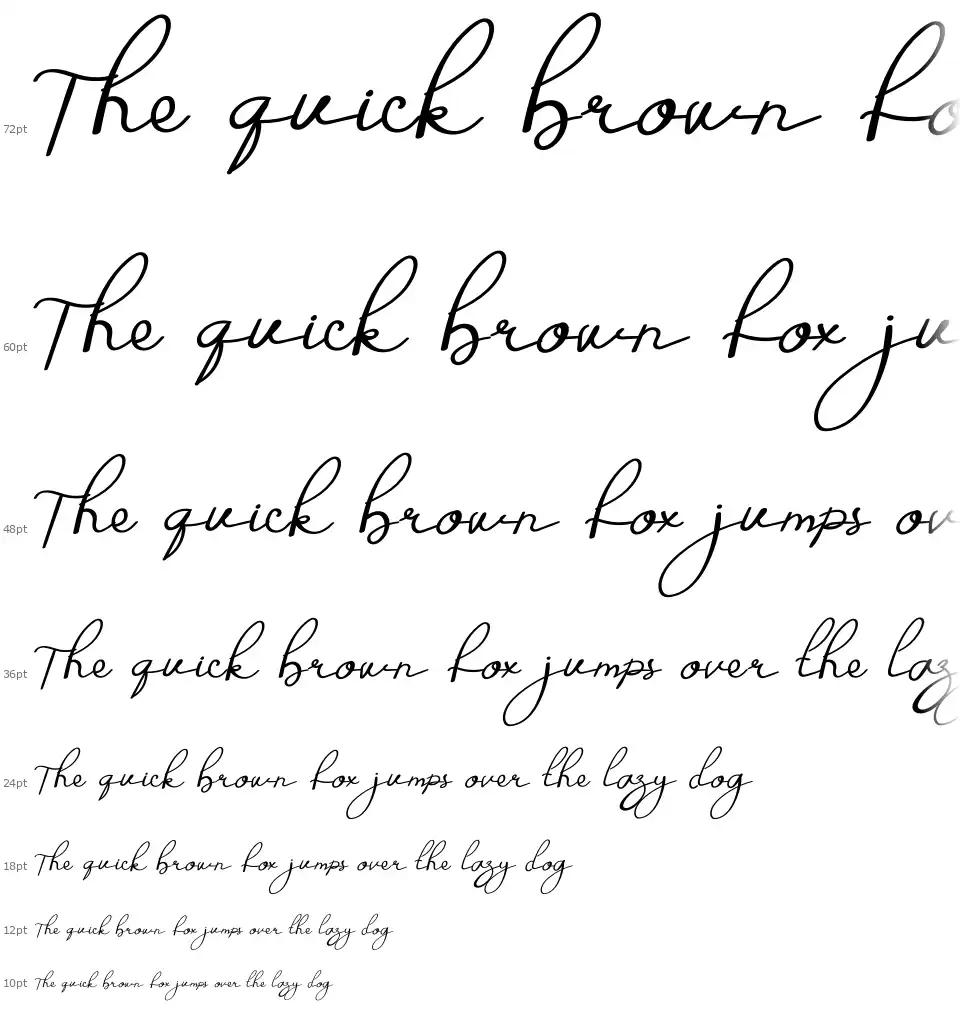 72pt The quick brown fo
60pt The quick brown fox ju
48pt The quick brown fox jumps ov
36pt The quick brown fox jumps over the laz
24pt The quick brown fox jumps over the lazy dog
18pt The quick brown fox jumps over the lazy dog
12pt The quick brown fox jumps over the lazy dog
10pt The quick brown fox jumps over the lazy dog